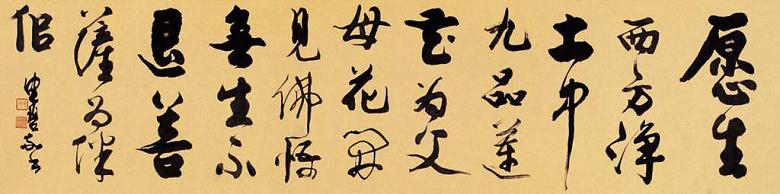 愿生
西方淨
土中
九品蓮
花为父
母花開
見佛悟
無生不
退菩
薩为伴
侶